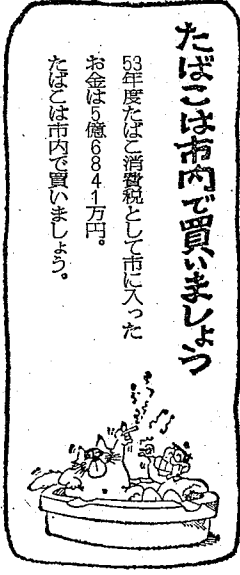 たばこは市内で買いましょう
53年度たばこ消費税として市に入った
お金は5億6841万円。
たばこは市内で買いましょう。